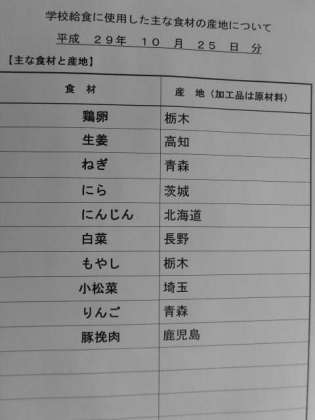 学校給食に使用した主な食材の産地について
平成 29年 10 月 25 日 分
【主な食材と産地】
食 材 産 地（加工品は原材料）
鶏卵 栃木
生姜 高知
ねぎ 青森
にら 茨城
にんじん 北海道
白菜 長野
もやし 栃木
小松菜 埼玉
りんご 青森
豚挽肉 鹿児島